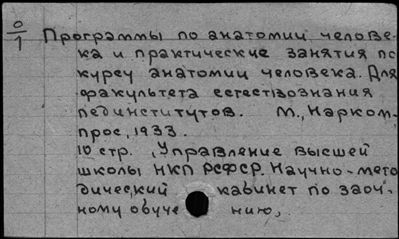 0/1
Программы по анатомии челове-
ка и практические занятия по
курсу анатомии человека. Для
факультета естествознания
пединститутов. М., Нарком-
прос, 1933.
10 стр. (Управление высшей
школы НКП РСФСР. Научно-мето
дический кабинет по заоч-
ному обуче нию).